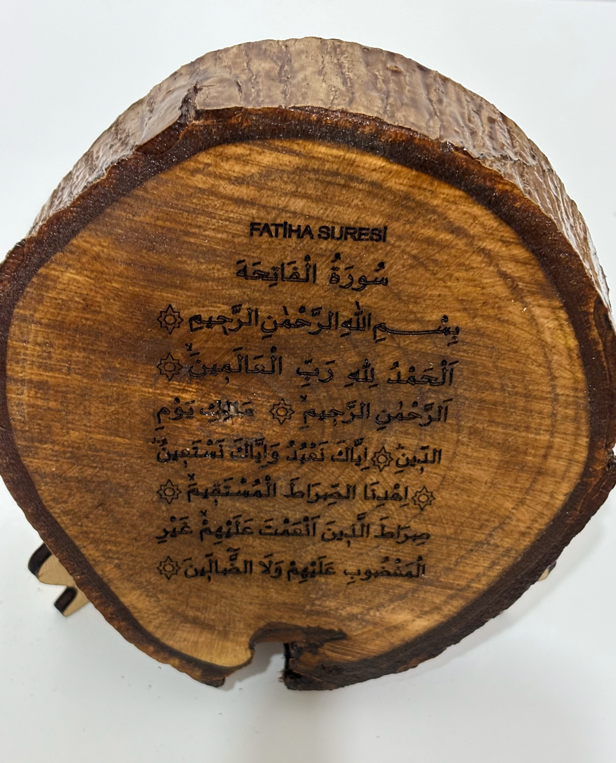 FATİHA SURESİ
سُورَةُ الْفَاتِحَةَ
بِسْــــمِ اللهِ الرَّحْمٰنِ الرَّحٖيمِ ۞
اَلْحَمْدُ لِلّٰهِ رَبِّ الْعَالَمٖينَۙ ۞
اَلرَّحْمٰنِ الرَّحٖيمِۙ ۞ مَالِكِ يَوْمِ
الدّٖينِؕ ۞ اِيَّاكَ نَعْبُدُ وَاِيَّاكَ نَسْتَعٖينُؕ
۞ اِهْدِنَا الصِّرَاطَ الْمُسْتَقٖيمَۙ ۞
صِرَاطَ الَّذٖينَ اَنْعَمْتَ عَلَيْهِمْۙ غَيْرِ
الْمَغْضُوبِ عَلَيْهِمْ وَلَا الضَّٓالّٖينَ ۞